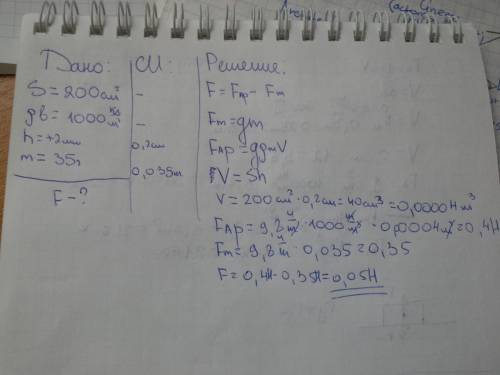 Дано:
S = 200 см²
gв = 1000 кг/м³
h = +2 мм
m = 35г
F - ?
СИ:
-
-
0,2 см
0,035 кг
Решение.
F = Fap - Fm
Fm = gm
Fap = ggжV
V = Sh
V = 200 см² · 0,2 см = 40 см³ = 0,00004 м³
Fap = 9,8 Н/кг · 1000 кг/м³ · 0,00004 м³ = 0,4Н
Fm = 9,8 Н/кг · 0,035 = 0,35
F = 0,4Н - 0,35Н = 0,05Н